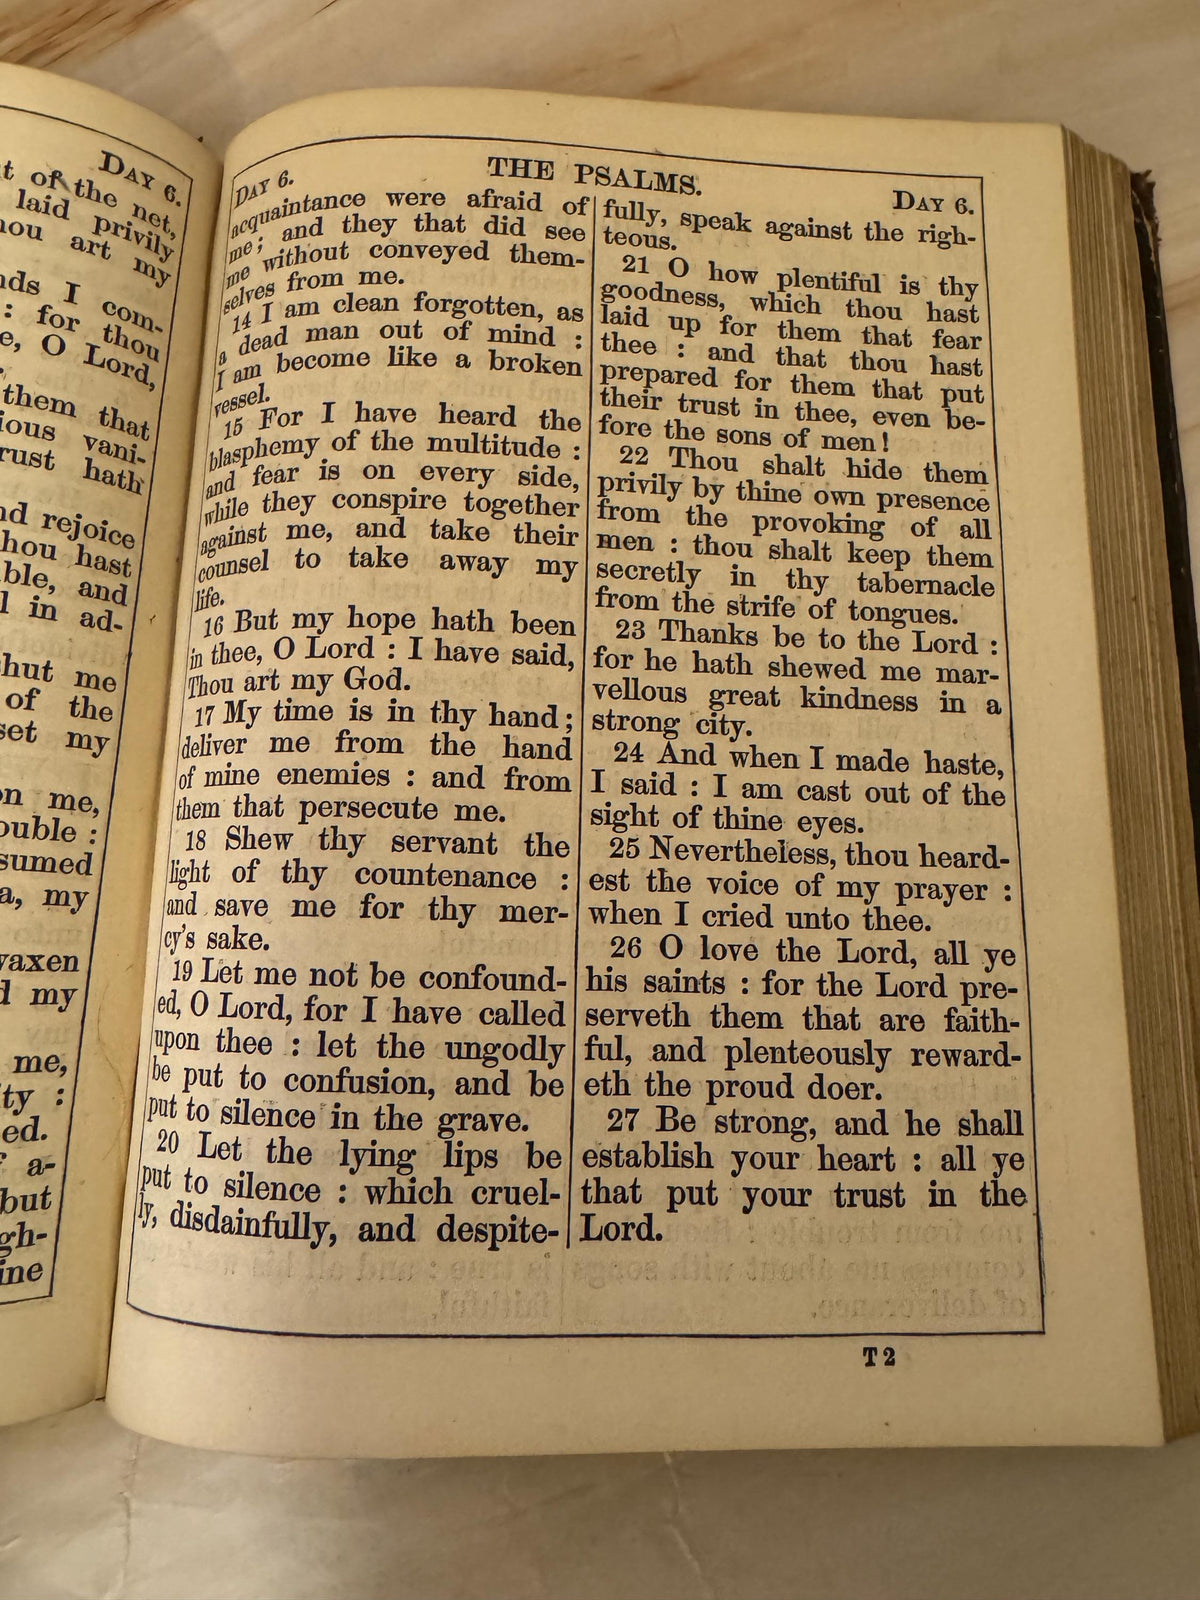 DAY 6.
t of the net,
laid privily
ou art my
ds I com-
: for thou
e, O Lord,
them that
ious vani-
rust hath
d rejoice
hou hast
ble, and
l in ad-
hut me
of the
set my
on me,
ouble :
sumed
a, my
waxen
d my
me,
ty :
ed.
a-
but
gh-
ine
DAY 6.
THE PSALMS.
DAY 6.
acquaintance were afraid of
me; and they that did see
me without conveyed them-
selves from me.
14 I am clean forgotten, as
a dead man out of mind :
I am become like a broken
vessel.
15 For I have heard the
blasphemy of the multitude :
and fear is on every side,
while they conspire together
against me, and take their
counsel to take away my
life.
16 But my hope hath been
in thee, O Lord : I have said,
Thou art my God.
17 My time is in thy hand;
deliver me from the hand
of mine enemies : and from
them that persecute me.
18 Shew thy servant the
light of thy countenance :
and save me for thy mer-
cy's sake.
19 Let me not be confound-
ed, O Lord, for I have called
upon thee : let the ungodly
be put to confusion, and be
put to silence in the grave.
20 Let the lying lips be
put to silence : which cruel-
ly, disdainfully, and despite-
fully, speak against the righ-
teous.
21 O how plentiful is thy
goodness, which thou hast
laid up for them that fear
thee : and that thou hast
prepared for them that put
their trust in thee, even be-
fore the sons of men!
22 Thou shalt hide them
privily by thine own presence
from the provoking of all
men : thou shalt keep them
secretly in thy tabernacle
from the strife of tongues.
23 Thanks be to the Lord :
for he hath shewed me mar-
vellous great kindness in a
strong city.
24 And when I made haste,
I said : I am cast out of the
sight of thine eyes.
25 Nevertheless, thou heard-
est the voice of my prayer :
when I cried unto thee.
26 O love the Lord, all ye
his saints : for the Lord pre-
serveth them that are faith-
ful, and plenteously reward-
eth the proud doer.
27 Be strong, and he shall
establish your heart : all ye
that put your trust in the
Lord.
T 2